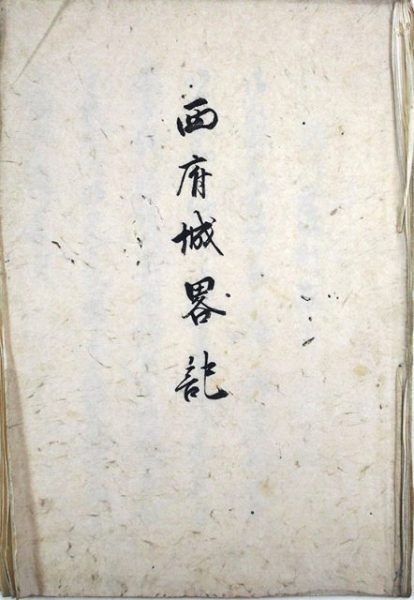 西府城畧記